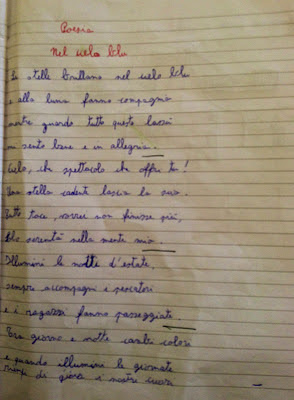 Poesia
Nel cielo blu
Le stelle brillano nel cielo blu
e alla luna fanno compagnia
mentre guardo tutto questo lassù
mi sento bene e in allegria.
Cielo, che spettacolo che offri tu!
Una stella cadente lascia la scia.
Tutto tace, vorrei non finisse più,
che serenità nella mente mia.
Illumini le notti d'estate,
sempre accompagni i pescatori
e i ragazzi fanno passeggiate
Tra giorno e notte cambi colori
e quando illumini le giornate
riempi di gioia i nostri cuori